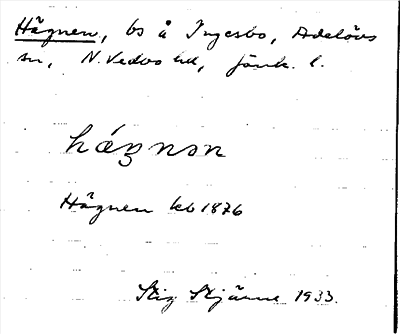 Hägnen, bs å Ingesbo, Adelövs
sn, N. Vedbo hd, Jönk. l.
hágnən
Hägnen kb 1876
Stig Stjärne 1933.